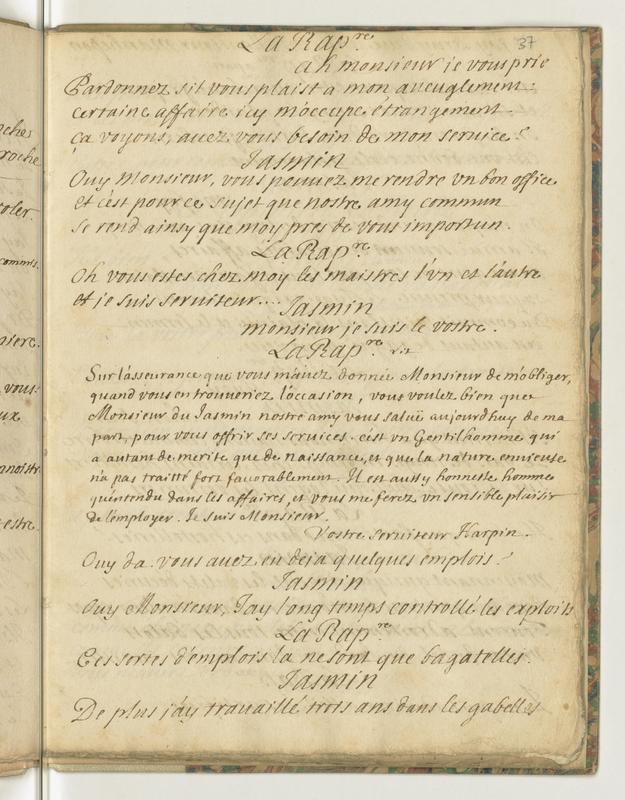 La Rap.re 37
ah monsieur je vous prie
Pardonnez sil vous plaist a mon aueuglement:
certaine affaire icy m'occupe etrangement.
ça voyons, auez vous besoin de mon seruice?
Jasmin
Ouy Monsieur, vous pouuez me rendre vn bon office
et c'est pour ce sujet que nostre amy commun
se rend ainsy que moy pres de vous importun.
La Rap.re
Oh vous estes chez moy les maistres l'vn et l'autre
et je suis seruiteur...
Jasmin
monsieur je suis le vostre.
La Rap.re lit
Sur l'asseurance que vous m'auez donnée Monsieur de m'obliger,
quand vous en trouueriez l'occasion, vous voulez bien que
Monsieur du Jasmin nostre amy vous salüe aujourdhuy de ma
part, pour vous offrir ses seruices. c'est vn Gentilhomme qui
a autant de merite que de naissance, et que la nature enuieuse
n'a pas traitté fort fauorablement. Il est aussy honneste homme
qu'entendu dans les affaires, et vous me ferez vn sensible plaisir
de l'employer. Je suis Monsieur.
Vostre seruiteur Harpin.
Ouy da. vous auez eu deja quelques emplois?
Jasmin
Ouy Monsieur, J'ay long temps controllé les exploits
La Rap.re
Ces sortes d'emplois la ne sont que bagatelles.
Jasmin
De plus j'ay trauaillé trois ans dans les gabelles